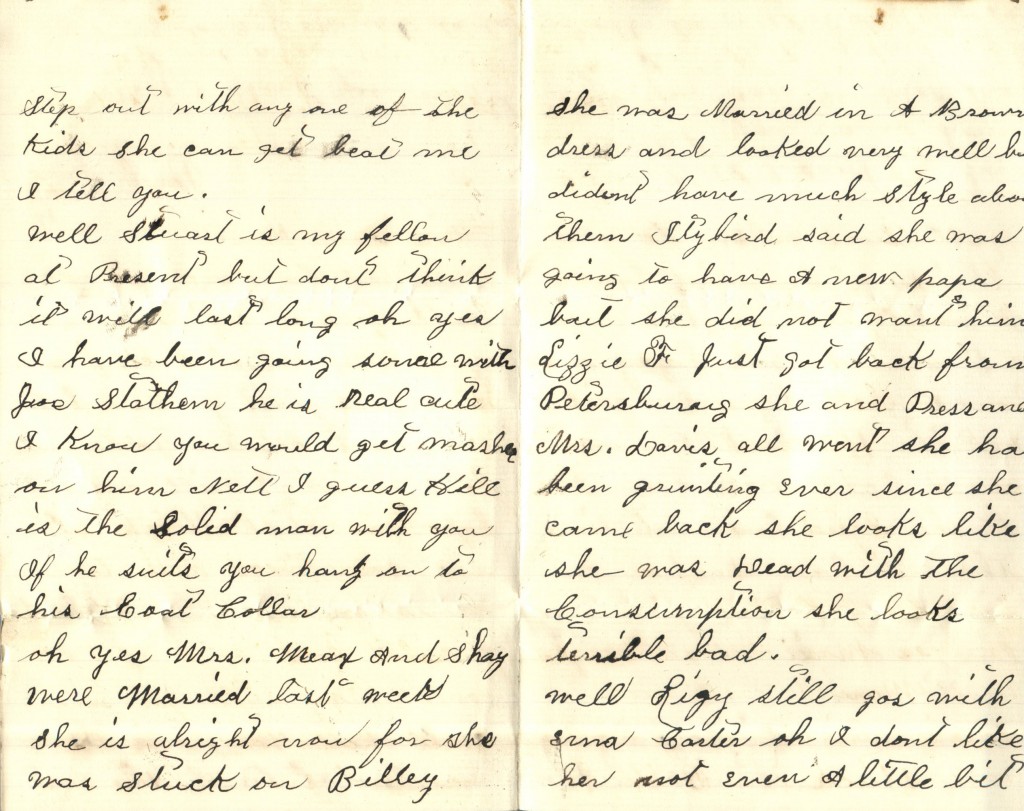 Step out with any one of the
Kids she can get beat me
I tell you.
well Stuart is my fellow
at Present but dont think
it will last long oh yes
I have been going some with
Joe Stathem he is real cute
I Know you would get mashed
on him Nett I guess Kill
is the Solid man with you
If he suits you hang on to
his Coat Collar
oh yes Mrs. Meax And Shay
were Married last week
She is alright now for she
was Stuck on Billey
she was Married in A Brown
dress and looked very well bu
didont have much Style abou
them Itybird said she was
going to have A new papa
bait she did not want him
Lizzie F Just got back from
Petersburg she and Press and
Mrs. Davis all went she ha
been grunting Ever since she
came back she looks like
she was Dead with the
Consumption she looks
terrible bad.
well still gos with
Erna Carter oh I dont like
her not Even A little bit